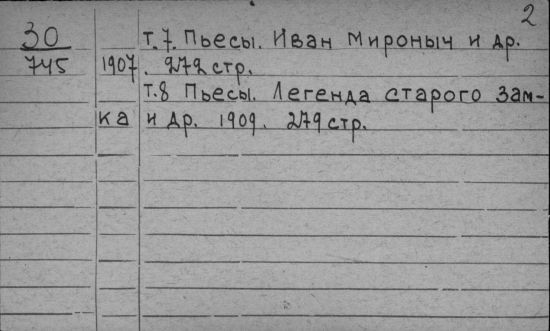 2
30 т.7. Пьесы. Иван Мироныч и др.
745 1907. 272 стр.
т.8 Пьесы. Легенда старого зам-
ка и др. 1909. 279 стр.